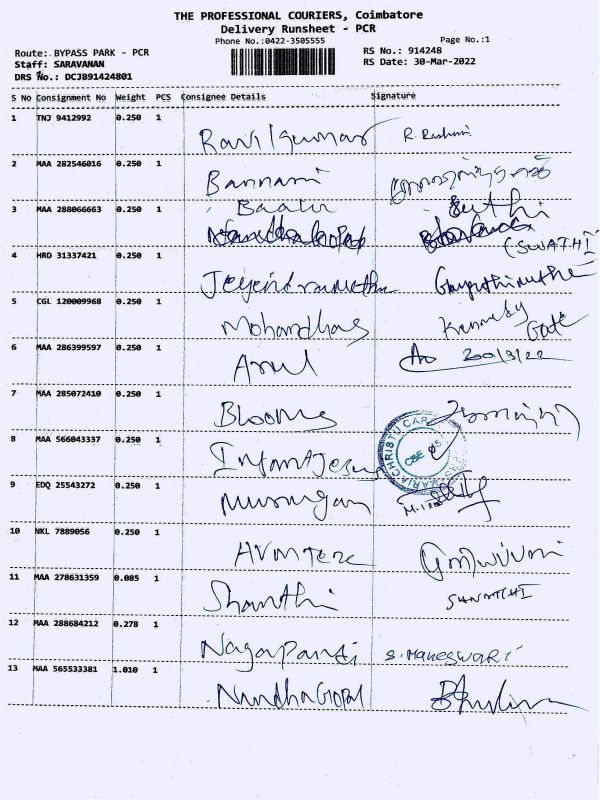 THE PROFESSIONAL COURIERS, Coimbatore
Delivery Runsheet - PCR
Phone No.:0422-3505555
Page No.:1
Route: BYPASS PARK - PCR
RS No.: 914248
Staff: SARAVANAN
RS Date: 30-Mar-2022
DRS No.: DCJB91424801
S No Consignment No Weight PCS Consignee Details Signature
1 TNJ 9412992 0.250 1
Ravi Kumar R. Rashmi
2 MAA 282546016 0.250 1
Bannami
3 MAA 288066663 0.250 1
Baalu
(SWATHI)
4 HRD 31337421 0.250 1
5 CGL 120009968 0.250 1
Mohandhas Kennedy
Gate
6 MAA 286399597 0.250 1
Arul
7 MAA 285072410 0.250 1
Blooms
8 MAA 566043337 0.250 1
Infant Jesus
9 EDQ 25543272 0.250 1
Murugan
10 NKL 7889056 0.250 1
11 MAA 278631359 0.085 1
Shanthi SHANTHI
12 MAA 288684212 0.278 1
Nagapandi S. MAHESWARI
13 MAA 565533381 1.010 1
NandhaGopal